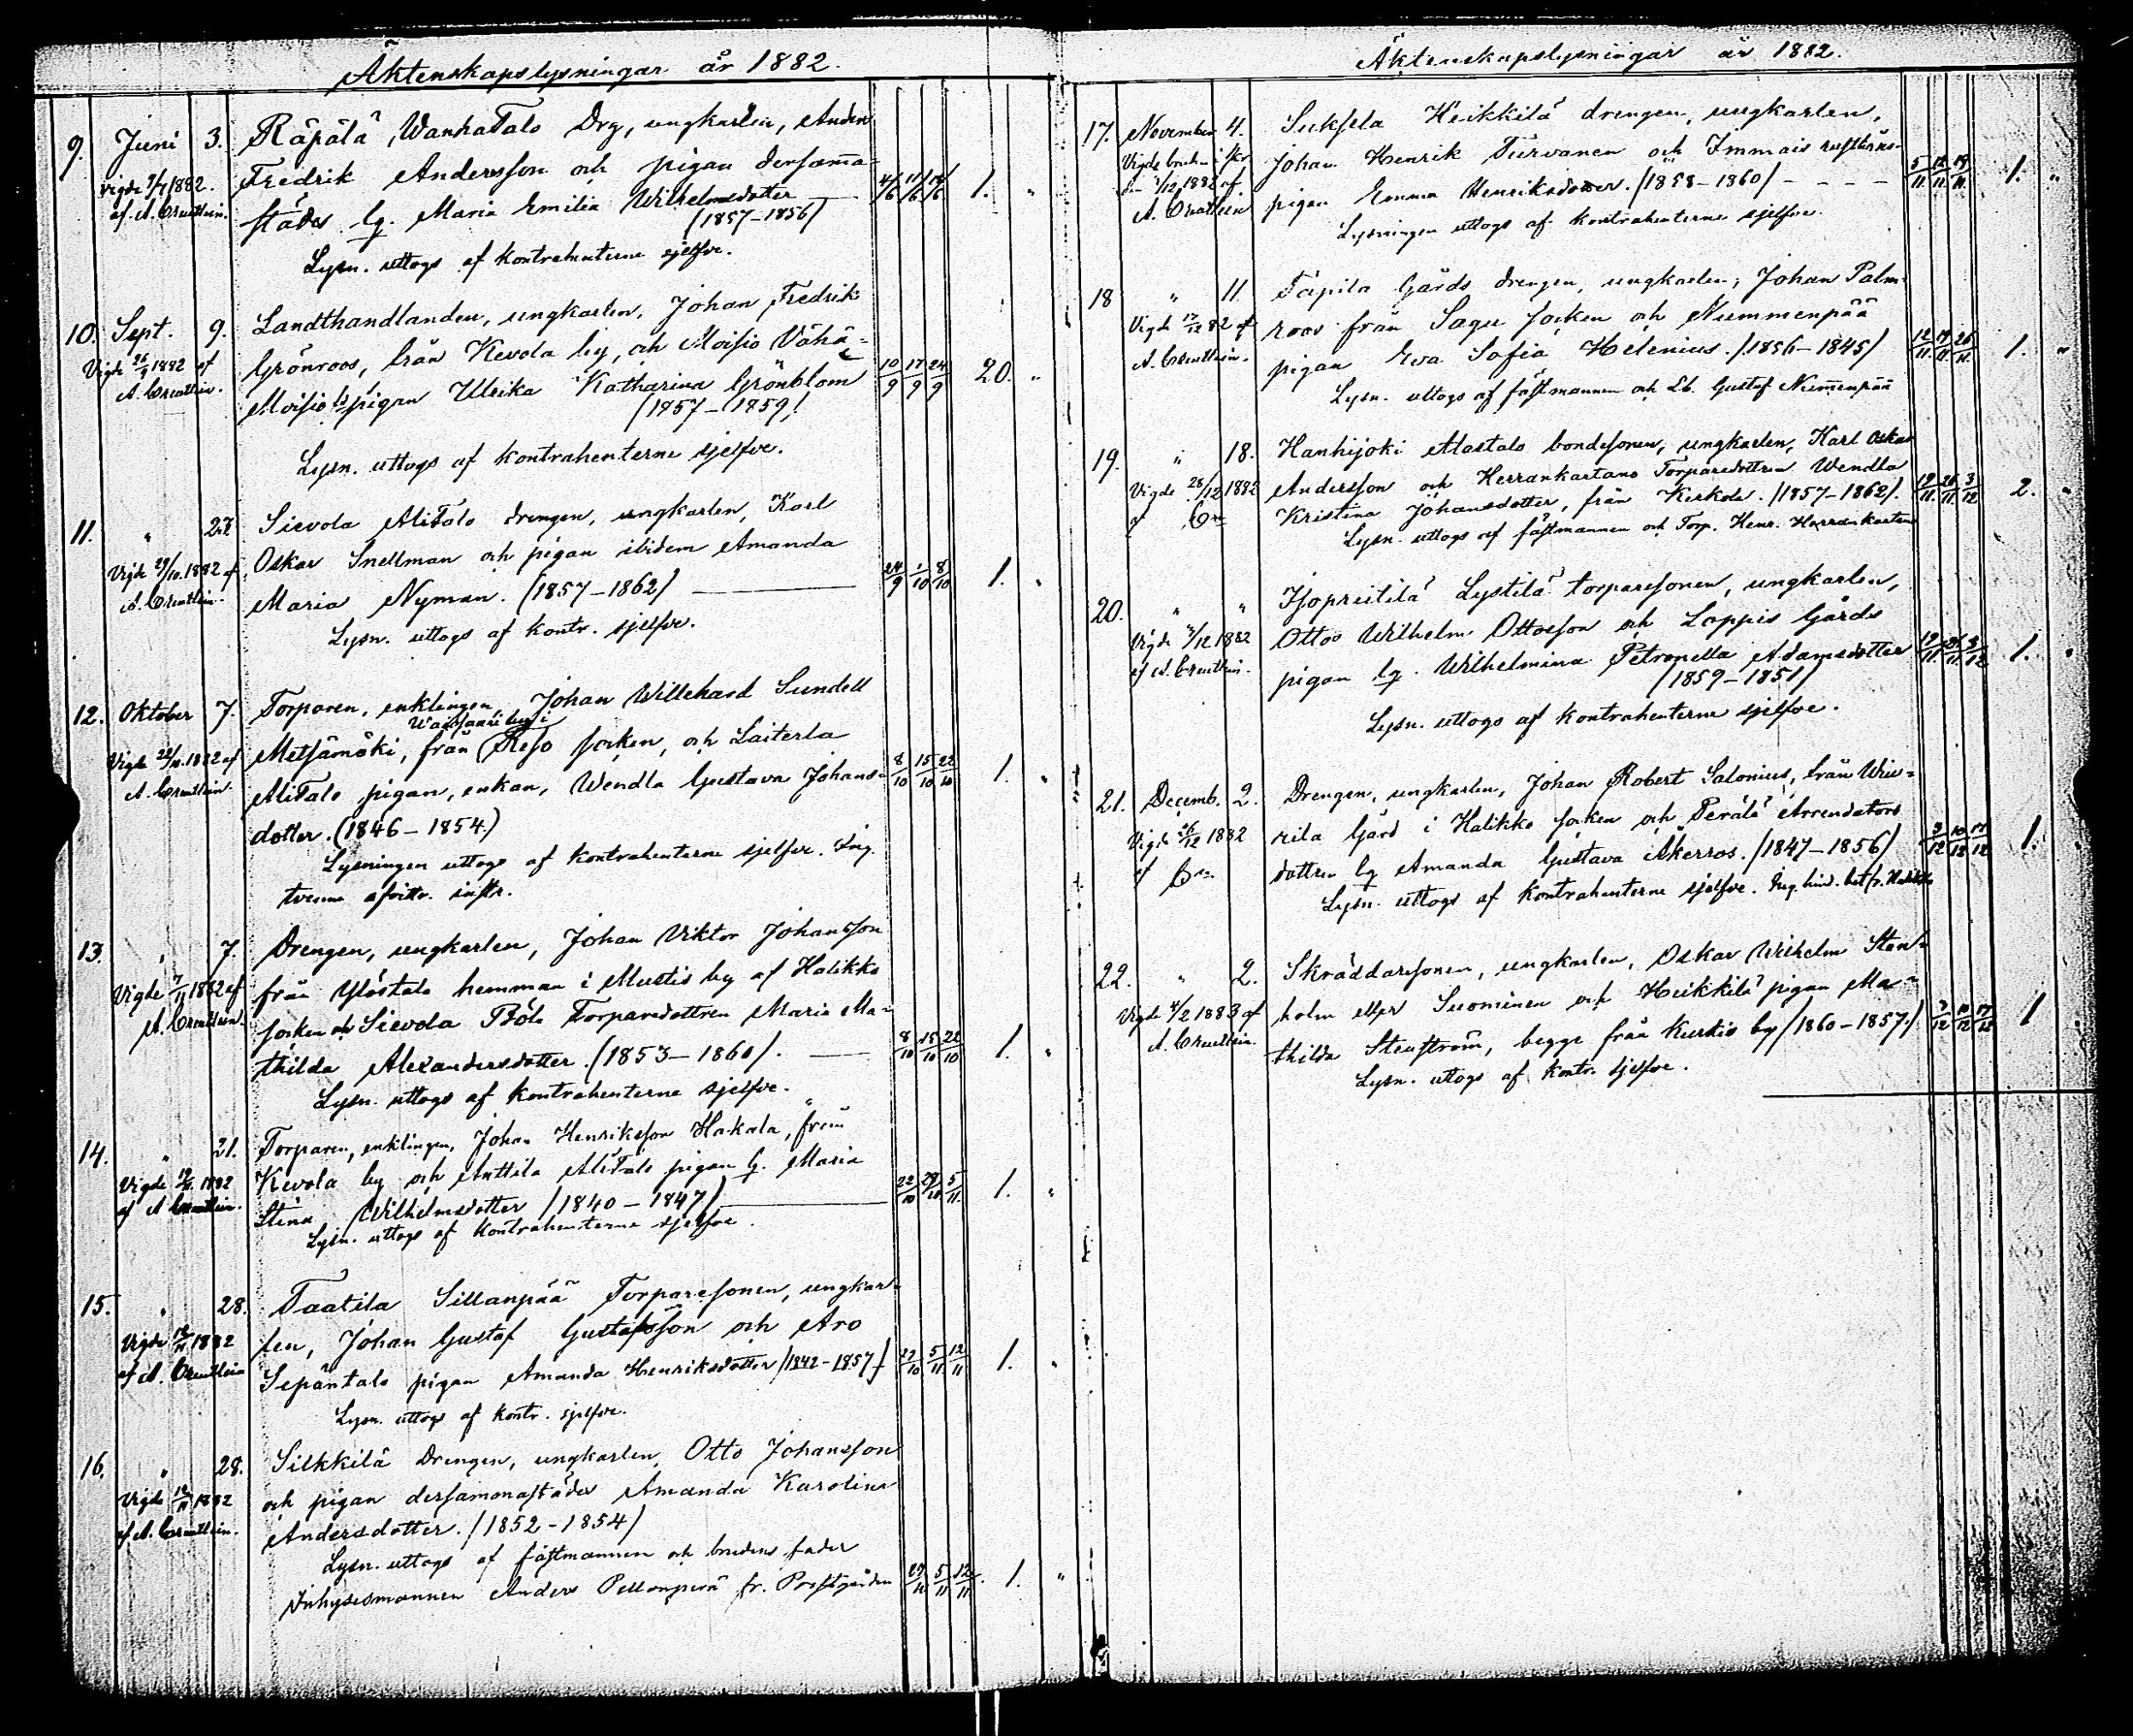 Äktenskapslysningar år 1882.
9. Juni 3. Räpälä, Wanhatalo Drg, ungkarlen, Anders
Vigde 9/7 1882. Fredrik Andersson och pigan dersamma-
af A. Orenthein. städes lg. Maria Emilia Wilhelmsdotter 4/6 11/6 18/6 1. "
(1857-1856)
Lysn. uttogs af kontrahenterne sjelfve.
10. Sept. 9. Landthandlanden, ungkarlen, Johan Fredrik
Vigde 26/9 1882 af Grönroos, från Kevola by, och Moisio Vähä-
A. Orenthein. Moisio pigan Ulrika Katharina Grönblom 10/9 17/9 24/9 20. "
(1857-1859)
Lysn. uttogs af kontrahenterne sjelfve.
11. " 23. Sievola Alitalo drengen, ungkarlen, Karl
Vigde 29/10 1882 af Oskar Snellman och pigan ibidem Amanda
A. Orenthein. Maria Nyman. (1857-1862) 24/9 1/10 8/10 1. "
Lysn. uttogs af kontr. sjelfve.
12. Oktober 7. Torparen, enklingen, Johan Willehard Sundell
Vigde 1882 af Metsämäki, från Reso socken, och Laiterla
A. Orenthein. Alitalo pigan, enkan, Wendla Gustava Johans- 8/10 15/10 22/10 1. "
dotter. (1846-1854.)
Lysningen uttogs af kontrahenterne sjelfve.
tvenne afvittr. instr.
13. " 7. Drengen, ungkarlen, Johan Viktor Johansson
Vigde 7/11 1882 af från Ylöstalo hemman i Mustis by af Halikko
A. Orenthein. socken och Sievola Torparedottren Maria Ma-
thilda Alexandersdotter. (1853-1860). 8/10 15/10 22/10 1. "
Lysn. uttogs af kontrahenterne sjelfve.
14. " 21. Torparen, enklingen, Johan Henriksson Hakala, från
Vigde 1882 Kevola by och Anttila Alitalo pigan lg. Maria
af A Orenthein. Stina Wilhelmsdotter (1840-1847) 22/10 29/10 5/11 1. "
Lysn. uttogs af kontrahenterne sjelfve.
15. " 28. Taatila Sillanpää Torparesonen, ungkar-
Vigde 1882 len, Johan Gustaf Gustafsson och Aro
af A. Orenthein Sepäntalo pigan Amanda Henriksdotter (1842-1857) 29/10 5/11 12/11 1. "
Lysn. uttogs af kontr. sjelfve.
16. " 28. Silkkilä Drengen, ungkarlen, Otto Johansson
Vigde 1882 och pigan dersammastädes Amanda Karolina
af A. Orenthein. Andersdotter. (1852-1854)
Lysn. uttogs af fästmannen och brudens fader
Inhysesmannen Anders Pellonperä fr. Prestgården 29/10 5/11 12/11 1. "
Äktenskapslysningar år 1882.
17. November 4. Suksela Heikkilä drengen, ungkarlen,
Johan Henrik Turvanen och Immais rusthåls-
1882 af pigan Emma Henriksdotter. (1858-1860) 5/11 12/11 19/11 1. "
A. Orenthein Lysningen uttogs af kontrahenterne sjelfve.
18 " 11 Täpilä Gårds drengen, ungkarlen, Johan Palm-
Vigde 17/12 82 af roos från Sagu socken och Nummenpää
A. Orenthein. pigan Eva Sofia Helenius. (1856-1845) 12/11 19/11 26/11 1. "
Lysn. uttogs af fästmannen och Lb. Gustaf Nummenpää
19. " 18. Hanhijoki Alastalo bondesonen, ungkarlen, Karl Oskar
Vigde 28/12 1882 Andersson och Herrankartano Torparedottren Wendla
af Kristina Johansdotter, från Kerkola. (1857-1862). 19/11 26/11 3/12 2. "
Lysn. uttogs af fästmannen och Torp. Henr. Herrankartano
20. " " Isopreitilä Lystilä torparesonen, ungkarlen,
Vigde /12 1882 Otto Wilhelm Ottosson och Lappis Gårds
af A. Orenthein. pigan lg. Wilhelmina Petronella Adamsdotter 19/11 26/11 3/12 1. "
(1859-1851)
Lysn. uttogs af kontrahenterne sjelfve.
21. Decemb. 2. Drengen, ungkarlen, Johan Robert Salonius, från Wiu-
Vigde 26/12 1882 rila Gård i Halikko socken och Perälä Arrendators
af dottren lg Amanda Gustava Åkerros. (1847-1856) 3/12 10/12 17/12 1. "
Lysn. uttogs af kontrahenterne sjelfve.
22. " 2. Skräddarsonen, ungkarlen, Oskar Wilhelm Sten-
Vigde 4/2 1883 af holm eller Suominen och Heikkilä pigan Ma-
A. Orenthein. thilda Stenström, begge från Kurkis by (1860-1857.) 3/12 10/12 17/12 1
Lysn. uttogs af kontr. sjelfve.